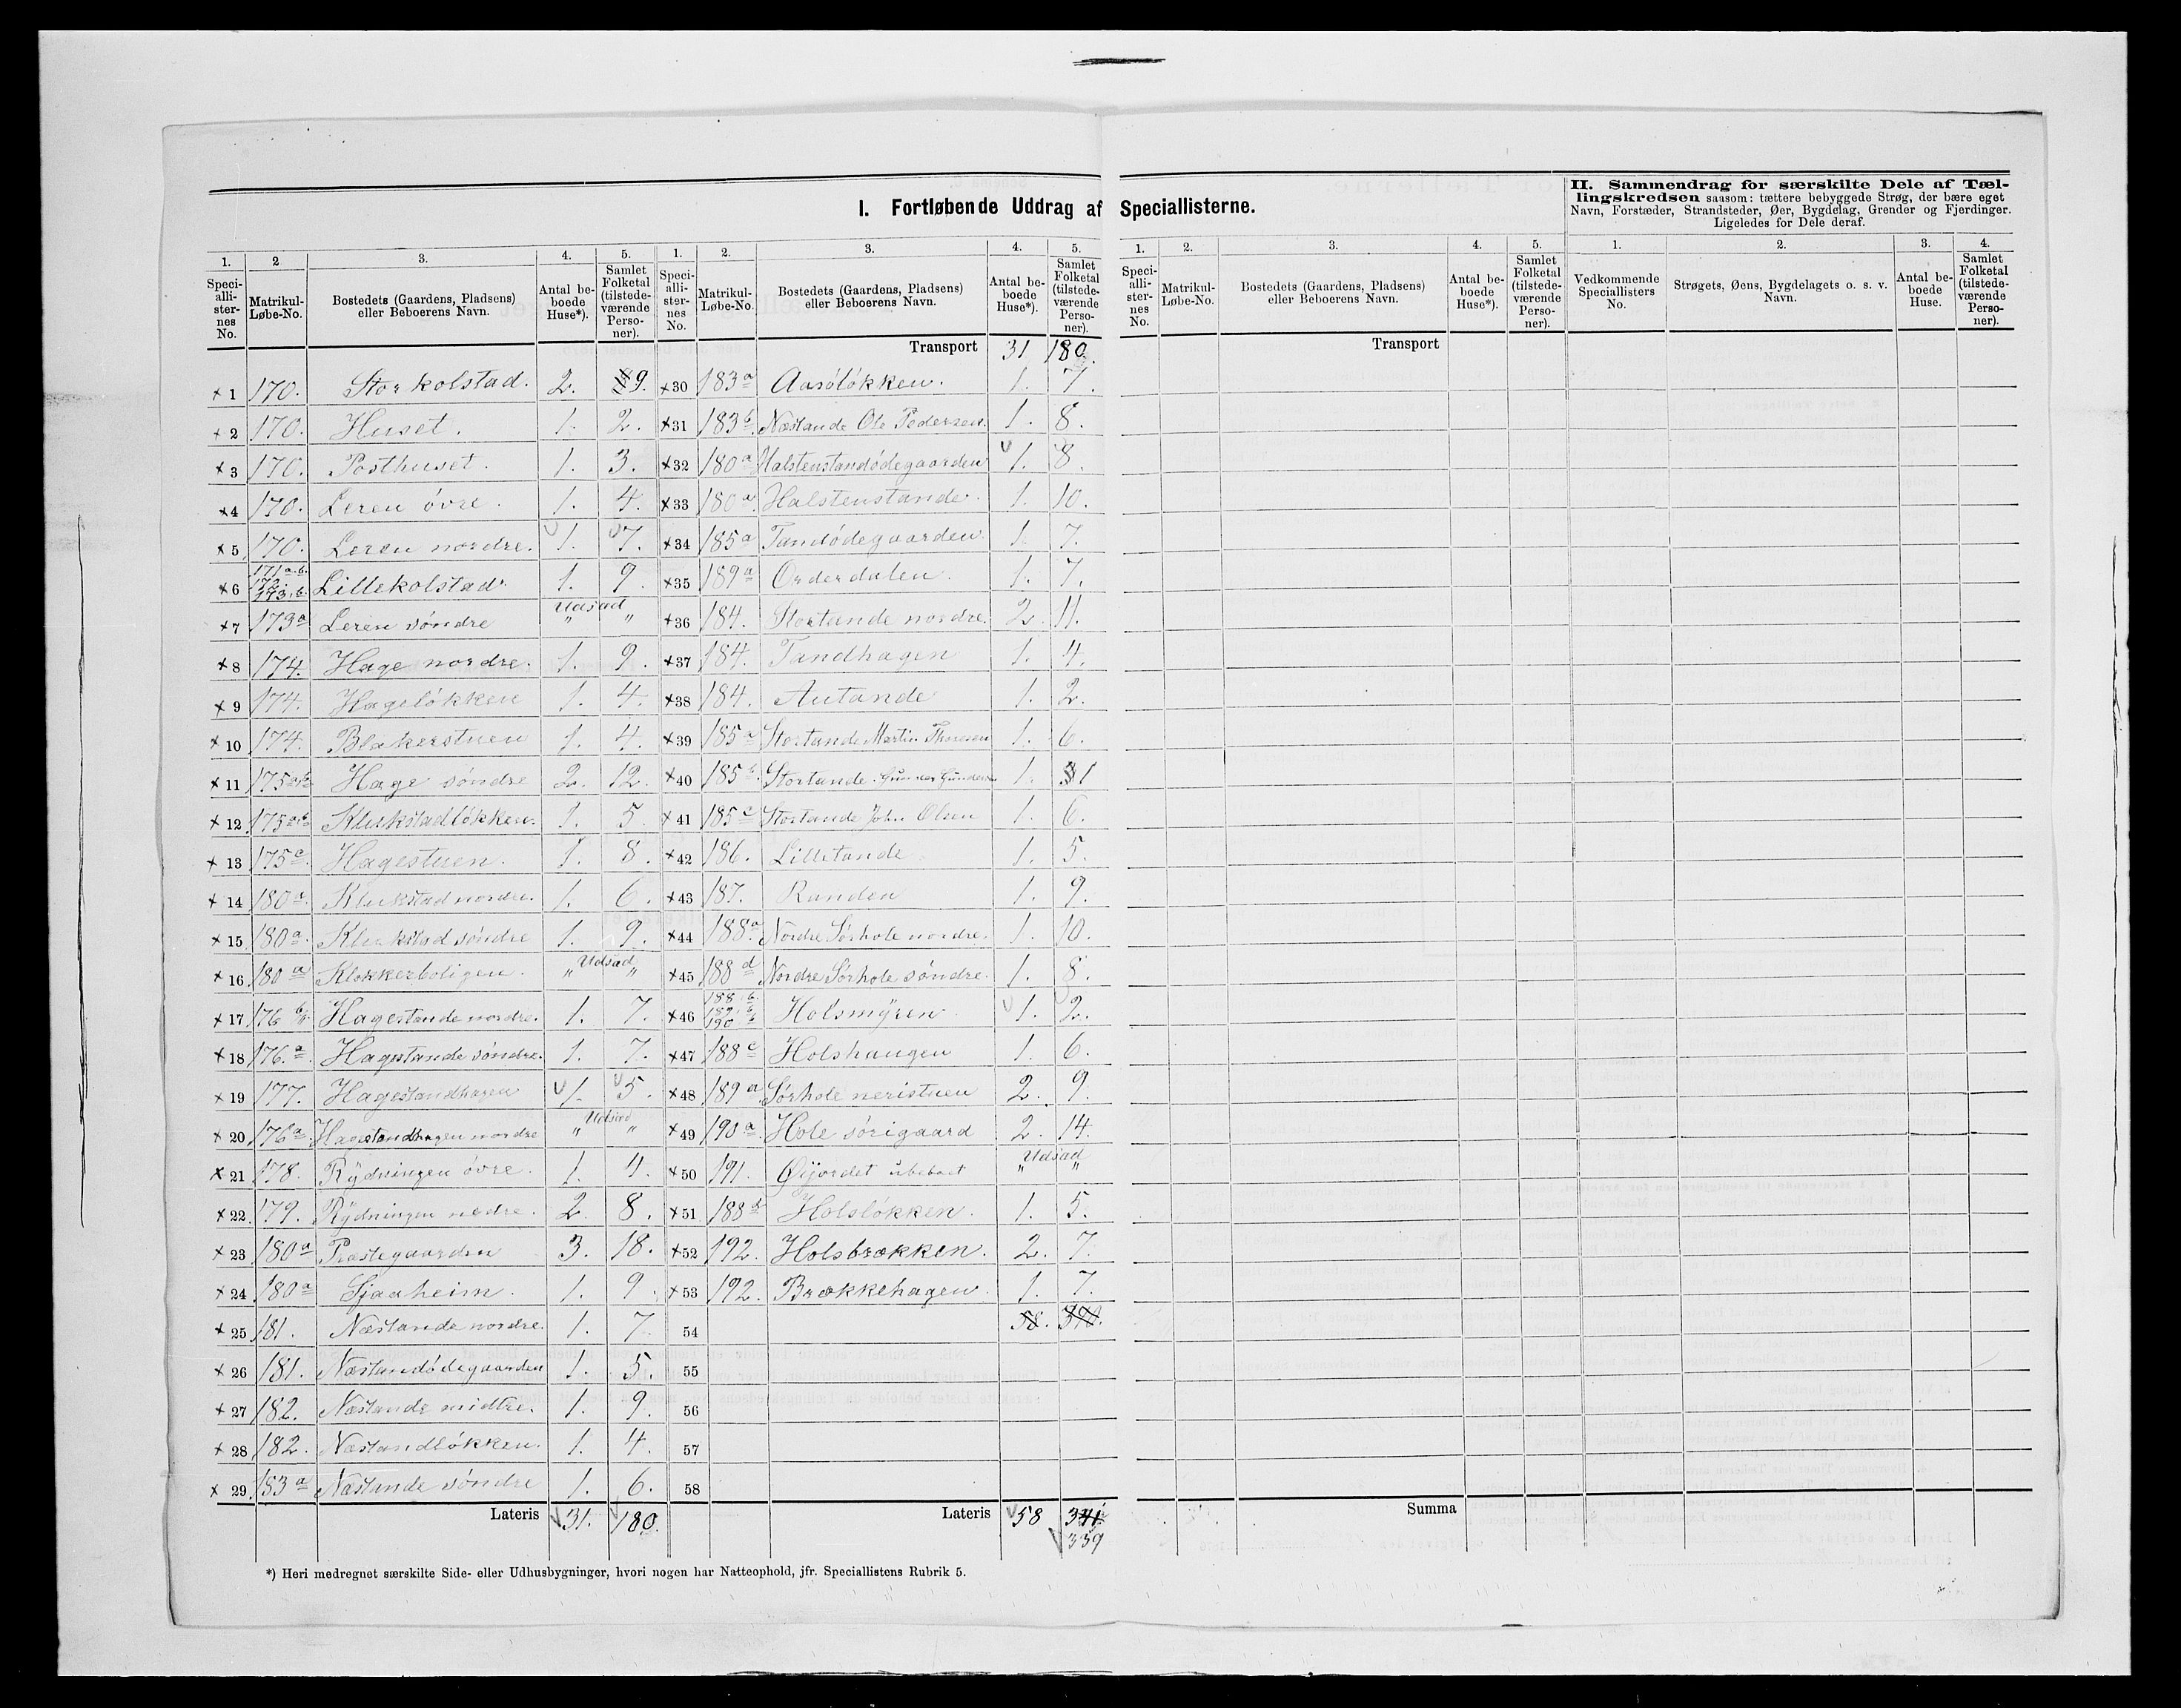 I. Fortløbende Uddrag af Speciallisterne.
II. Sammendrag for særskilte Dele af Tæl-
lingskredsen saasom: tættere bebyggede Strøg, der bære eget
Navn, Forstæder, Strandsteder, Øer, Bygdelag, Grender og Fjerdinger.
Ligeledes for Dele deraf.
1. 2 3. 4. 5. 1. 2. 3. 4. 5. 1. 2. 3. 4. 5. 1. 2. 3. 4.
Speci-alli-ster-nes No. Matrikul-Løbe-No. Bostedets (Gaardens, Pladsens) eller Beboerens Navn. Antal be-boede Huse*). Samlet Folketal (tilstede-værende Perso-ner).
Speci-alli-ster-nes No. Matrikul-Løbe-No. Bostedets (Gaardens, Pladsens) eller Beboerens Navn. Antal be-boede Huse*). Samlet Folketal (tilstede-værende Perso-ner).
Speci-alli-ster-nes No. Matrikul-Løbe-No. Bostedets (Gaardens, Pladsens) eller Beboerens Navn. Antal be-boede Huse*). Samlet Folketal (tilstede-værende Perso-ner).
Vedkommende Speciallisters No. Strøgets, Øens, Bygdelagets o. s. v. Navn. Antal be-boede Huse. Samlet Folketal (tilstede-værende Perso-ner).
x 1 170. Storkolstad. 2. 9.
x 2 170. Huset. 1. 2.
x 3 170. Posthuset. 1. 3.
x 4 170. Leren óvre. 1. 4.
x 5 170. Leren nordre. 1. 7.
x 6 171 a.b. 172. 173.b. Lillekolstad. 1. 9.
x 7 173 a Leren sóndre Udsæd " "
x 8 174. Hage nordre. 1. 9.
x 9 174. Hagelókken 1. 4.
x 10 174. Blakerstuen 1. 4.
x 11 175 a,b Hage sóndre 2. 12.
x 12 175 a,b Klukstadlókken. 1. 5.
x 13 175 c. Hagestuen. 1. 8.
x 14 180 a. Klukstad nordre. 1. 6.
x 15 180 a. Klukstad sóndre 1. 9.
x 16 180 a Klokkerboligen. Udsæd " "
x 17 176 b. Hagestande nordre. 1. 7.
x 18 176. a. Hagestande sóndre. 1. 7.
x 19 177. Hagestandhagen 1. 5.
x 20 176 a. Hagestandhagen nordre Udsæd " "
x 21 178. Rydningen óvre. 1. 4.
x 22 179. Rydningen nedre. 2. 8.
x 23 180 a Præstegaarden 3. 18.
x 24 180 a Sjaaheim. 1. 9.
x 25 181. Næstande nordre. 1. 7.
x 26 181. Næstandódegaarden 1. 5.
x 27 182. Næstande midtre. 1. 9.
x 28 182. Næstandlókken. 1. 4.
x 29 183 a Næstande sóndre 1. 6.
Lateris 31. 180.
Transport 31 180.
x 30 183 a Aasólókken. 1. 7.
x 31 183 b. Næstande Ole Pedersen. 1. 8.
x 32 180 a Halstenstandódegaarden 1. 8.
x 33 180 a. Halstenstande. 1. 10.
x 34 185 a Tandódegaarden. 1. 7.
x 35 189 a Orderdalen. 1. 7.
x 36 184. Stortande nordre. 2. 11.
x 37 184. Tandhagen 1. 4.
x 38 184. Autande 1. 2.
x 39 185 a Stortande Martin Thoresen 1. 6.
x 40 185 b. Stortande Gunner Gunders 1. 1
x 41 185 c Stortande John Olsen 1. 6.
x 42 186. Lilletande 1. 5.
x 43 187. Randen 1. 9.
x 44 188 a. Nordre Sórhole nordre. 1. 10.
x 45 188 d Nordre Sórhole sóndre. 1. 8.
x 46 188 b. 189 b 190 b Holsmyren 1. 2.
x 47 188 c Holshaugen 1. 6.
x 48 189 a. Sórhole neristuen 2. 9.
x 49 190 a. Hole sórigaard 2. 14.
x 50 191. Øijordet ubeboet Udsæd " "
x 51 188 d Holslókken. 1. 5.
x 52 192. Holsbrækken. 2. 7.
x 53 192. Brækkehagen. 1. 7.
54 58. 340.
55
56
57
58
Lateris 58 341
339
Transport
Summa
*) Heri medregnet særskilte Side- eller Udhusbygninger, hvori nogen har Natteophold, jfr. Speciallistens Rubrik 5.